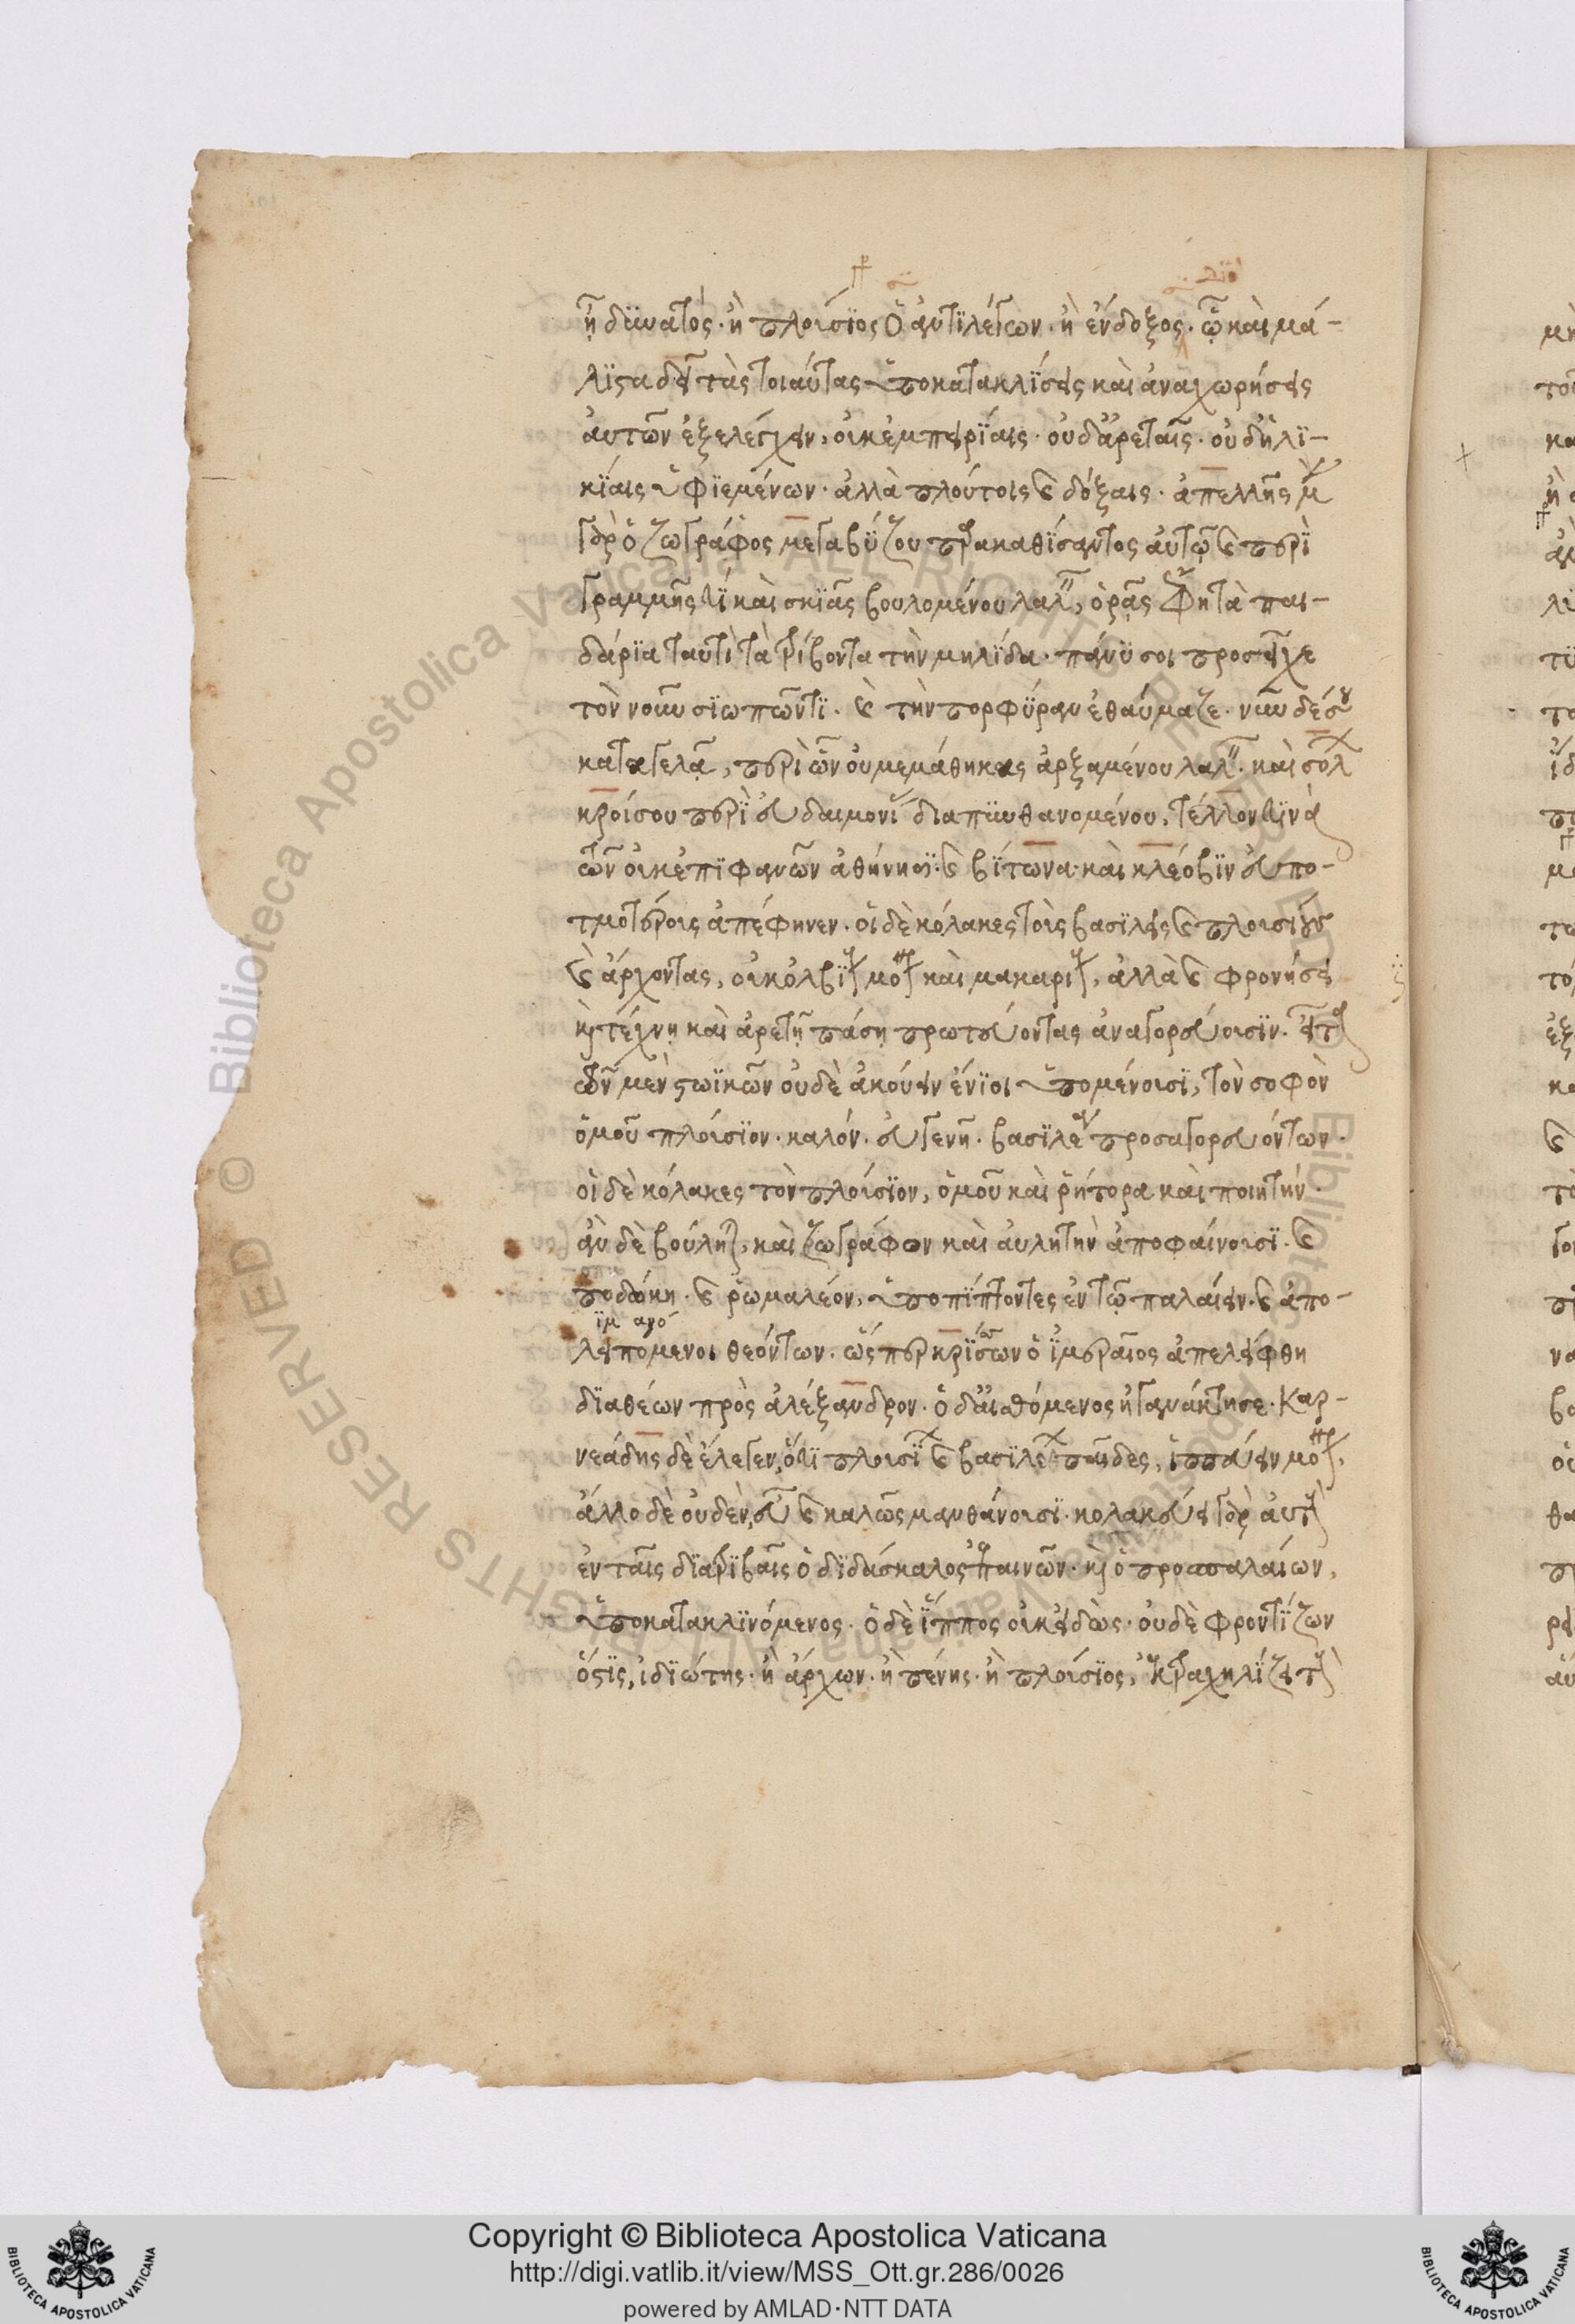 ἢ δυνατὸς· ἢ πλούσιος ὁ ἀντιλέγων· ἢ ἔνδοξος· ᾧ καὶ μά-
λιστα δεῖ τὰς τοιαύτας ὑποκατακλίσεις καὶ ἀναχωρήσεις
αὐτῶν ἐξελέγχειν, οὐκ ἐμπειρίαις· οὐδ' ἀρεταῖς· οὐδ' ἡλι-
κίαις ὑφιεμένων· ἀλλὰ πλούτοις καὶ δόξαις· ἀπελλῆς μὲν
γὰρ ὁ ζωγράφος μεγαβύζου παρακαθίσαντος αὐτῷ καὶ περὶ
γραμμῆς τι καὶ σκιᾶς βουλομένου λαλεῖν, ὁρᾷς ἔφη τὰ παι-
δάρια ταυτὶ τὰ τρίβοντα τὴν μηλίδα· πάνυ σοι προσεῖχε
τὸν νοῦν σιωπῶντι· καὶ τὴν πορφύραν ἐθαύμαζε· νῦν δέ σου
καταγελᾷ, περὶ ὧν οὐ μεμάθηκας ἀρξαμένου λαλεῖν· καὶ σόλων
κροίσου περὶ εὐδαιμονίας διαπυνθανομένου, τέλλον τινὰ
τῶν οὐκ ἐπιφανῶν ἀθήνησι· καὶ βίτωνα καὶ κλέοβιν εὐπο-
τμοτέρους ἀπέφηνεν· οἱ δὲ κόλακες τοὺς βασιλεῖς καὶ πλουσίους
καὶ ἄρχοντας, οὐκ ὀλβίους μόνον καὶ μακαρίους, ἀλλὰ καὶ φρονήσει
καὶ τέχνῃ καὶ ἀρετῇ πάσῃ πρωτεύοντας ἀναγορεύουσιν· εἶτα
τῶν μὲν στωικῶν οὐδὲ ἀκούειν ἔνιοι ὑπομένουσι, τὸν σοφὸν
ὁμοῦ πλούσιον· καλόν· εὐγενῆ· βασιλέα προσαγορευόντων·
οἱ δὲ κόλακες τὸν πλούσιον, ὁμοῦ καὶ ῥήτορα καὶ ποιητήν·
ἂν δὲ βούληται, καὶ ζωγράφον καὶ αὐλητὴν ἀποφαίνουσι· καὶ
ποδώκη· καὶ ῥωμαλέον, ὑποπίπτοντες ἐν τῷ παλαίειν· καὶ ἀπο-
λειπόμενοι θεόντων· ὥσπερ κρίσσων ὁ ἱμεραῖος ἀπελείφθη
διαθέων πρὸς ἀλέξανδρον· ὁ δ' αἰσθόμενος ἠγανάκτησε· Καρ-
νεάδης δὲ ἔλεγεν, ὅτι πλουσίων καὶ βασιλέων παῖδες, ἱππεύειν μόνον,
ἄλλο δὲ οὐδὲν, εὖ καὶ καλῶς μανθάνουσι· κολακεύει γὰρ αὐτοὺς
ἐν ταῖς διατριβαῖς ὁ διδάσκαλος ἐπαινῶν· καὶ ὁ προσπαλαίων,
ὑποκατακλινόμενος· ὁ δὲ ἵππος οὐκ εἰδὼς· οὐδὲ φροντίζων
ὅστις, ἰδιώτης· ἢ ἄρχων· ἢ πένης· ἢ πλούσιος, ἐκτραχηλίζει τοὺς
Copyright © Biblioteca Apostolica Vaticana
http://digi.vatlib.it/view/MSS_Ott.gr.286/0026
powered by AMLAD·NTT DATA